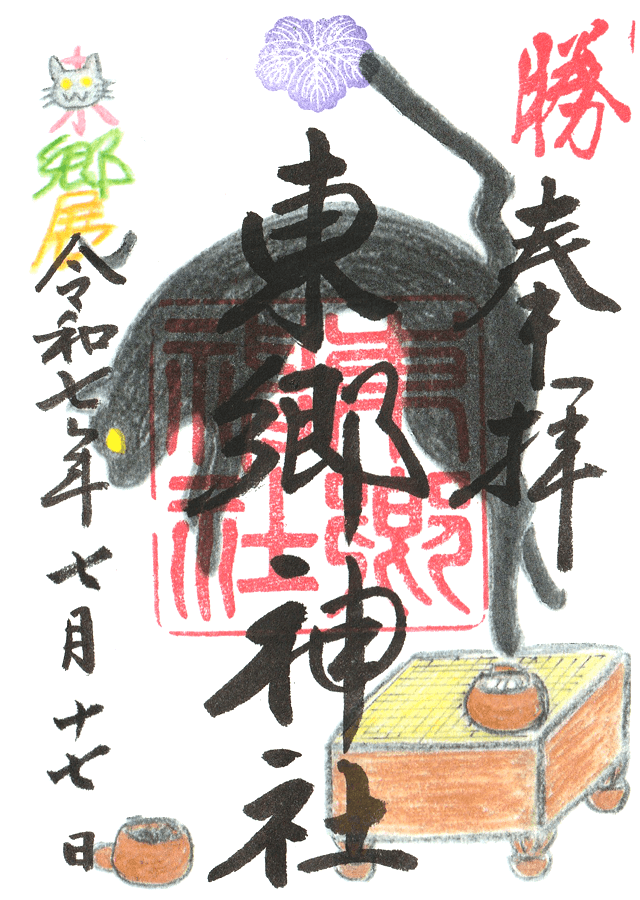 勝
奉拝
東郷神社
東郷神社
東郷展
令和七年七月十七日